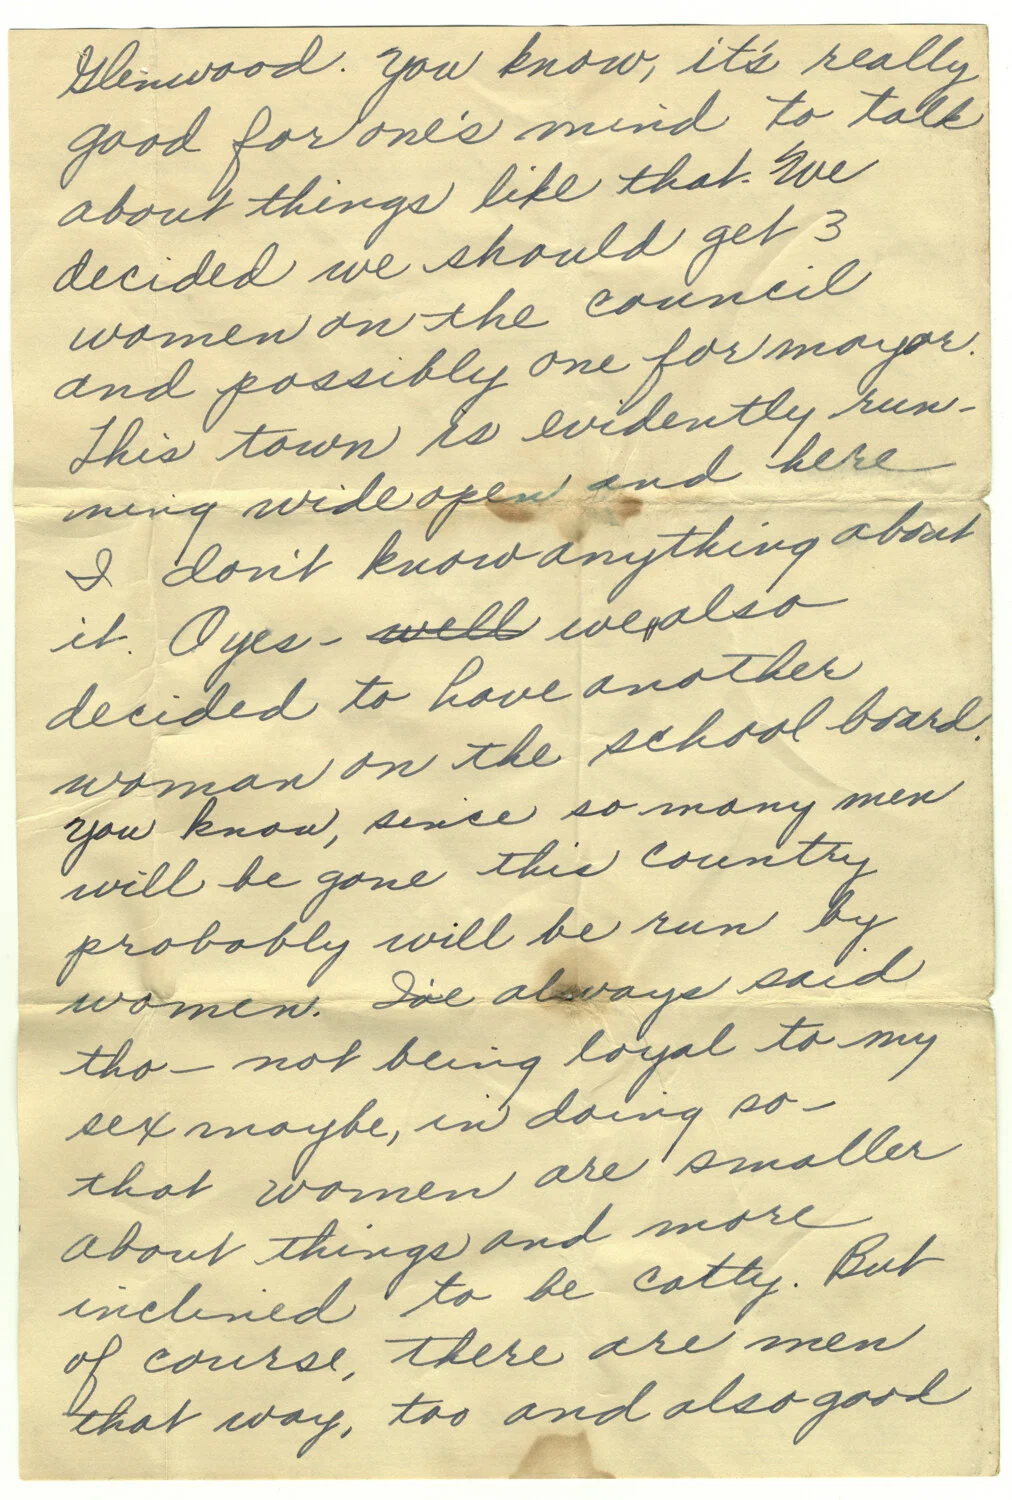 Glenwood. You know, it's really
good for one's mind to talk
about things like that. We
decided we should get 3
women on the council
and possibly one for mayor.
This town is evidently run-
ning wide open and here
I don't know anything about
it. O yes - well we also
decided to have another
woman on the school board.
You know, since so many men
will be gone this country
probably will be run by
women. I've always said
tho - not being loyal to my
sex maybe, in doing so -
that women are smaller
about things and more
inclined to be catty. But
of course, there are men
that way, too and also good